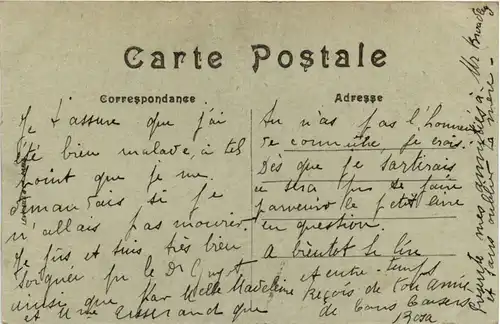 Carte Postale
Correspondance
Je t'assure que j'ai
été bien malade, à tel
point que je me
demandais si je
n'allais pas mourir.
Je fus et suis très bien
soignée par le Dr
ainsi que par Melle Madeleine
et Mme que
Adresse
tu n'as pas l'honneur
de connaître, je crois.
Dès que je sortirais
ce sera pour te faire
parvenir le petit livre
en question.
A bientôt le lire
et entre temps
reçois de ton amie
de bons baisers
Rosa
mes amitiés à Mr
et sans oublier ta mère